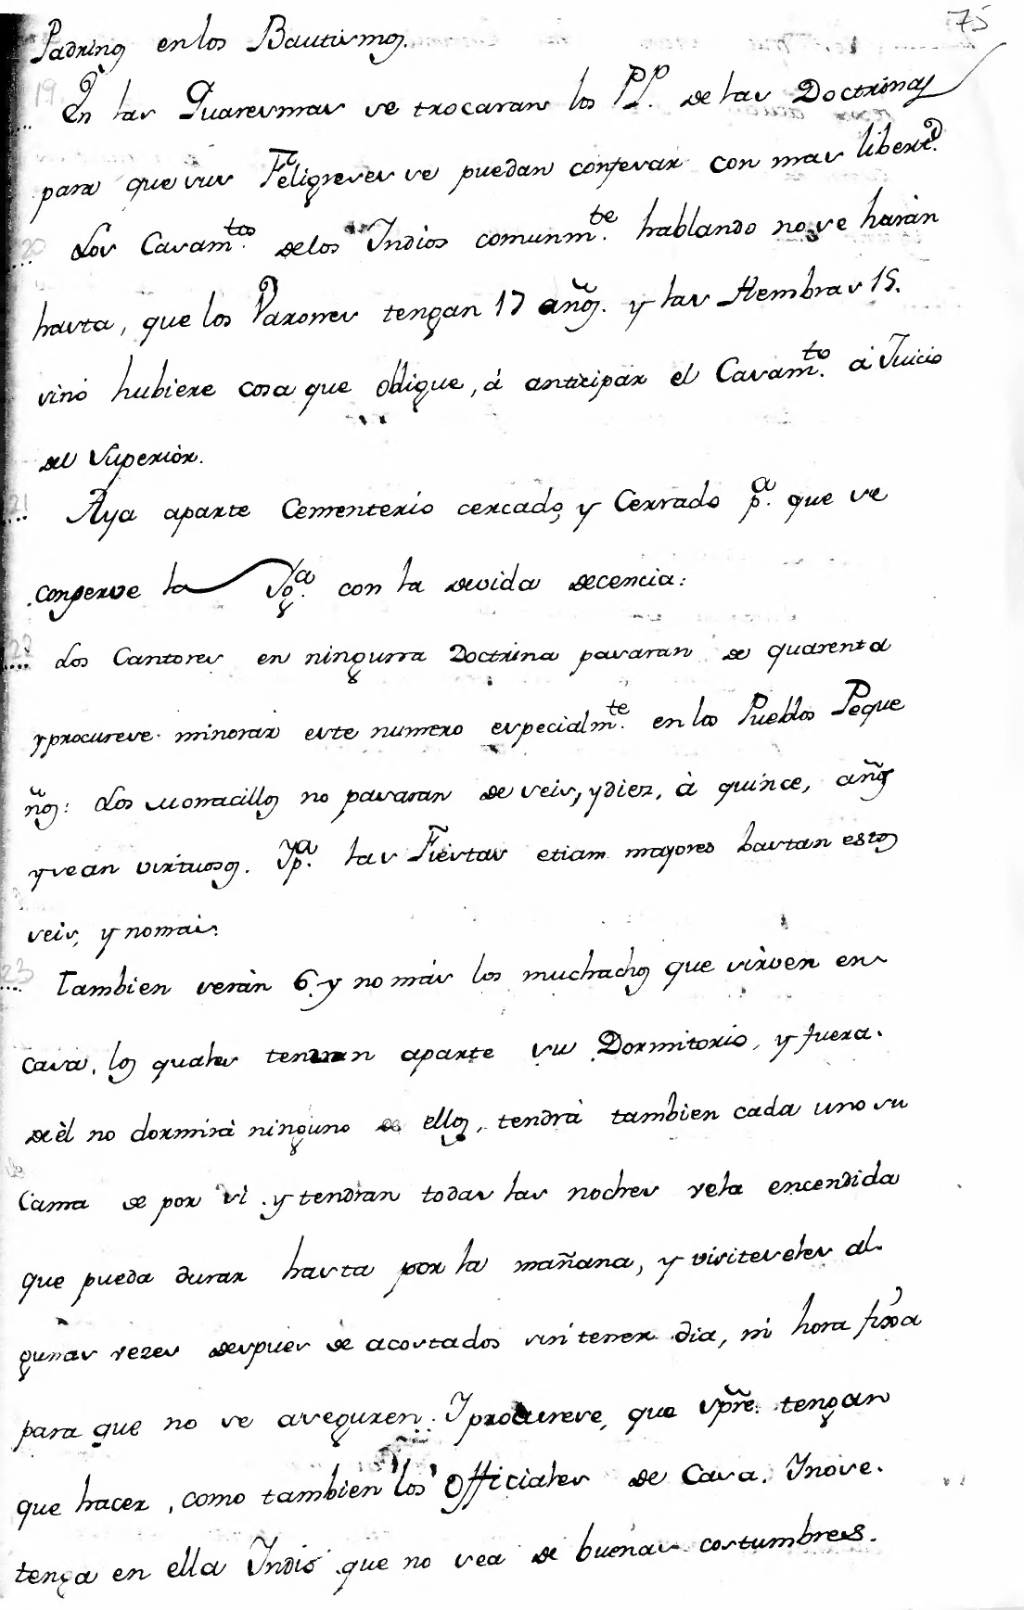 75
Padrinos en los Bautismos.
19 En las Quaresmas se trocaran los PP. de las Doctrinas
para que sus Feligreses se puedan confesar con mas libertd.
20 Los Casamtos. de los Indios comunmte. hablando no se haràn
hasta, que los Varones tengan 17 años. y las Hembras 15.
sino hubiere cosa que obligue, à anticipar el Casamto. à Juicio
del Superiòr.
21 Aya aparte Cementerio cercado, y Cerrado pa. que se
conserve la Yga. con la devida decencia:
22 Los Cantores en ninguna Doctrina pasaran de quarenta
y procurese minorar este numero especialmte. en los Pueblos Peque
ños: Los Monacillos no pasaran de seis, y diez, à quince, años
y sean virtuosos. Ypa. las Fiestas etiam mayores bastan estos
seis, y no mais.
23 Tambien seràn 6. y no màs los muchachos que sirven en
casa, los quales tendran aparte su Dormitorio, y fuera.
de èl no dormirà ninguno de ellos, tendrà tambien cada uno su
Cama de por si y tendran todas las noches vela encendida
que pueda durar hasta por la mañana, y visiteseles al-
gunas vezes despues de acostados sin tener dia, ni hora fixa
para que no se aseguren. Y procurese, que spre. tengan
que hacer, como tambien los Officiales de Casa. Y no se.
tenga en ella Indio que no sea de buenas costumbres.